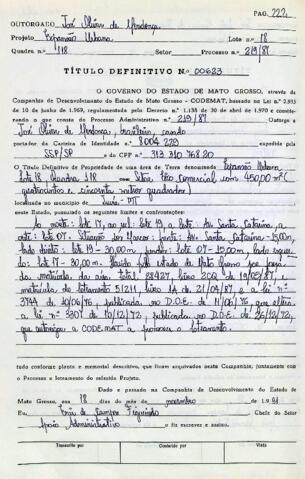 PAG. 222
OUTORGADO José Olivier de Mendonça
Projeto Expansão Urbana Lote n.º 18
Quadra n.º 118 Setor Processo n.º 219/87
TÍTULO DEFINITIVO N.º 00623
O GOVERNO DO ESTADO DE MATO GROSSO, através da
Companhia de Desenvolvimento do Estado de Mato Grosso - CODEMAT, baseado na Lei n.º
10 de junho de 1.969, regulamentada pelo Decreto n.º 1.138 de 30 de abril de 1.970 e considerando
o que consta do Processo Administrativo n.º 219/87 Outorga a
José Olivier de Mendonça, brasileiro, casado
portador da Carteira de Identidade n.º 8004 229 expedida pela
SSP/SP e do CPF n.º 313 310 768 20
O Título Definitivo de Propriedade de uma área de Terra denominada Expansão Urbana
lote 18 Quadra 118 com 450,00 m² (
quatrocentos e cinquenta metros quadrados)
localizada no município de MT
neste Estado, possuindo os seguintes limites e confrontações:
norte: lote 17, ao sul: lote 19 a leste: Av. Santa Catarina, a
oeste: lote 07. Situação dos Marcos: frente: Av. Santa Catarina - 15,00m,
lado direito: lote 19 - 30,00m, fundo: lote 07 - 15,00m, lado esquer-
do: lote 17 - 30,00m. Havido pelo estado de Mato Grosso
da matrícula da área total 28427, livro 2CQ de 19/03/87, e
matrícula do loteamento 51211 livro 1A de 21/04/87, e a lei n.º
3744 de 10/06/76, publicada no D.O.E. de 11/06/76 que altera
a lei n.º 3307 de 10/12/72, publicada no D.O.E. de 26/12/72,
que autorizou a CODEMAT a promover o loteamento.
tudo conforme planta e memorial descritivo, que ficam arquivados nesta Companhia, juntamente com
o Processo e loteamento do aludido Projeto.
Dado e passado na Companhia de Desenvolvimento do Estado de
Mato Grosso, em 18 dias do mês de novembro de 1.991
Eu, de Campos Figueiredo Chefe do Setor
Apoio Administrativo o fiz escrever e assino.
Transcrito por Conferido por Visto